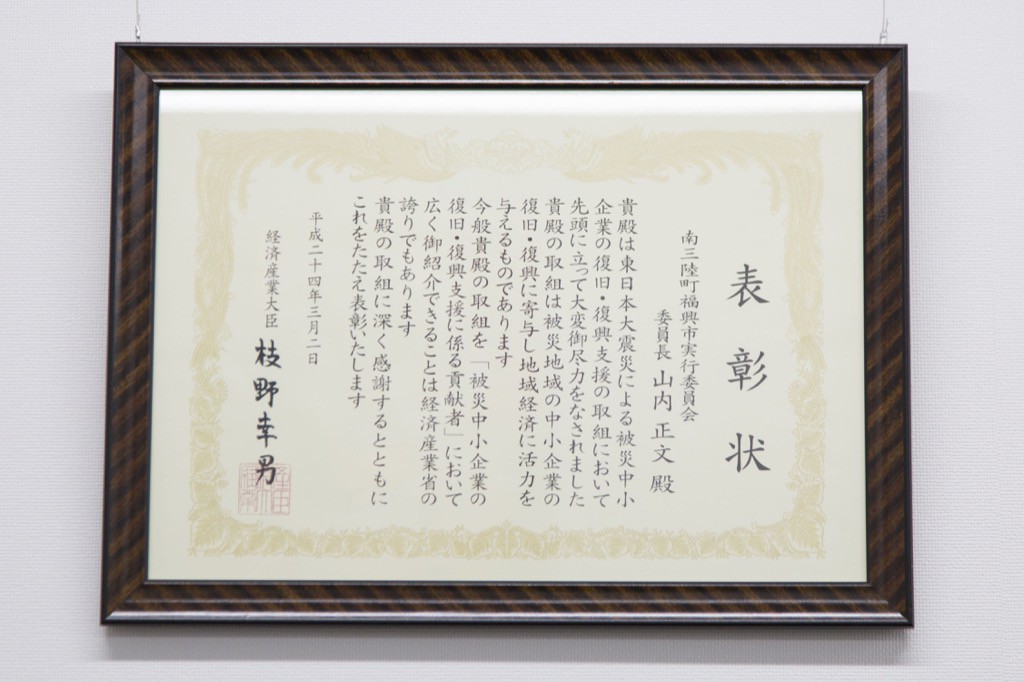 表彰状
南三陸町福興市実行委員会
委員長 山内 正文 殿
貴殿は東日本大震災による被災中小
企業の復旧・復興支援の取組において
先頭に立って大変御尽力をなされました
貴殿の取組は被災地域の中小企業の
復旧・復興に寄与し地域経済に活力を
与えるものであります
今般貴殿の取組を「被災中小企業の
復旧・復興支援に係る貢献者」において
広く御紹介できることは経済産業省の
誇りでもあります
貴殿の取組に深く感謝するとともに
これをたたえ表彰いたします
平成二十四年三月二日
経済産業大臣 枝野幸男